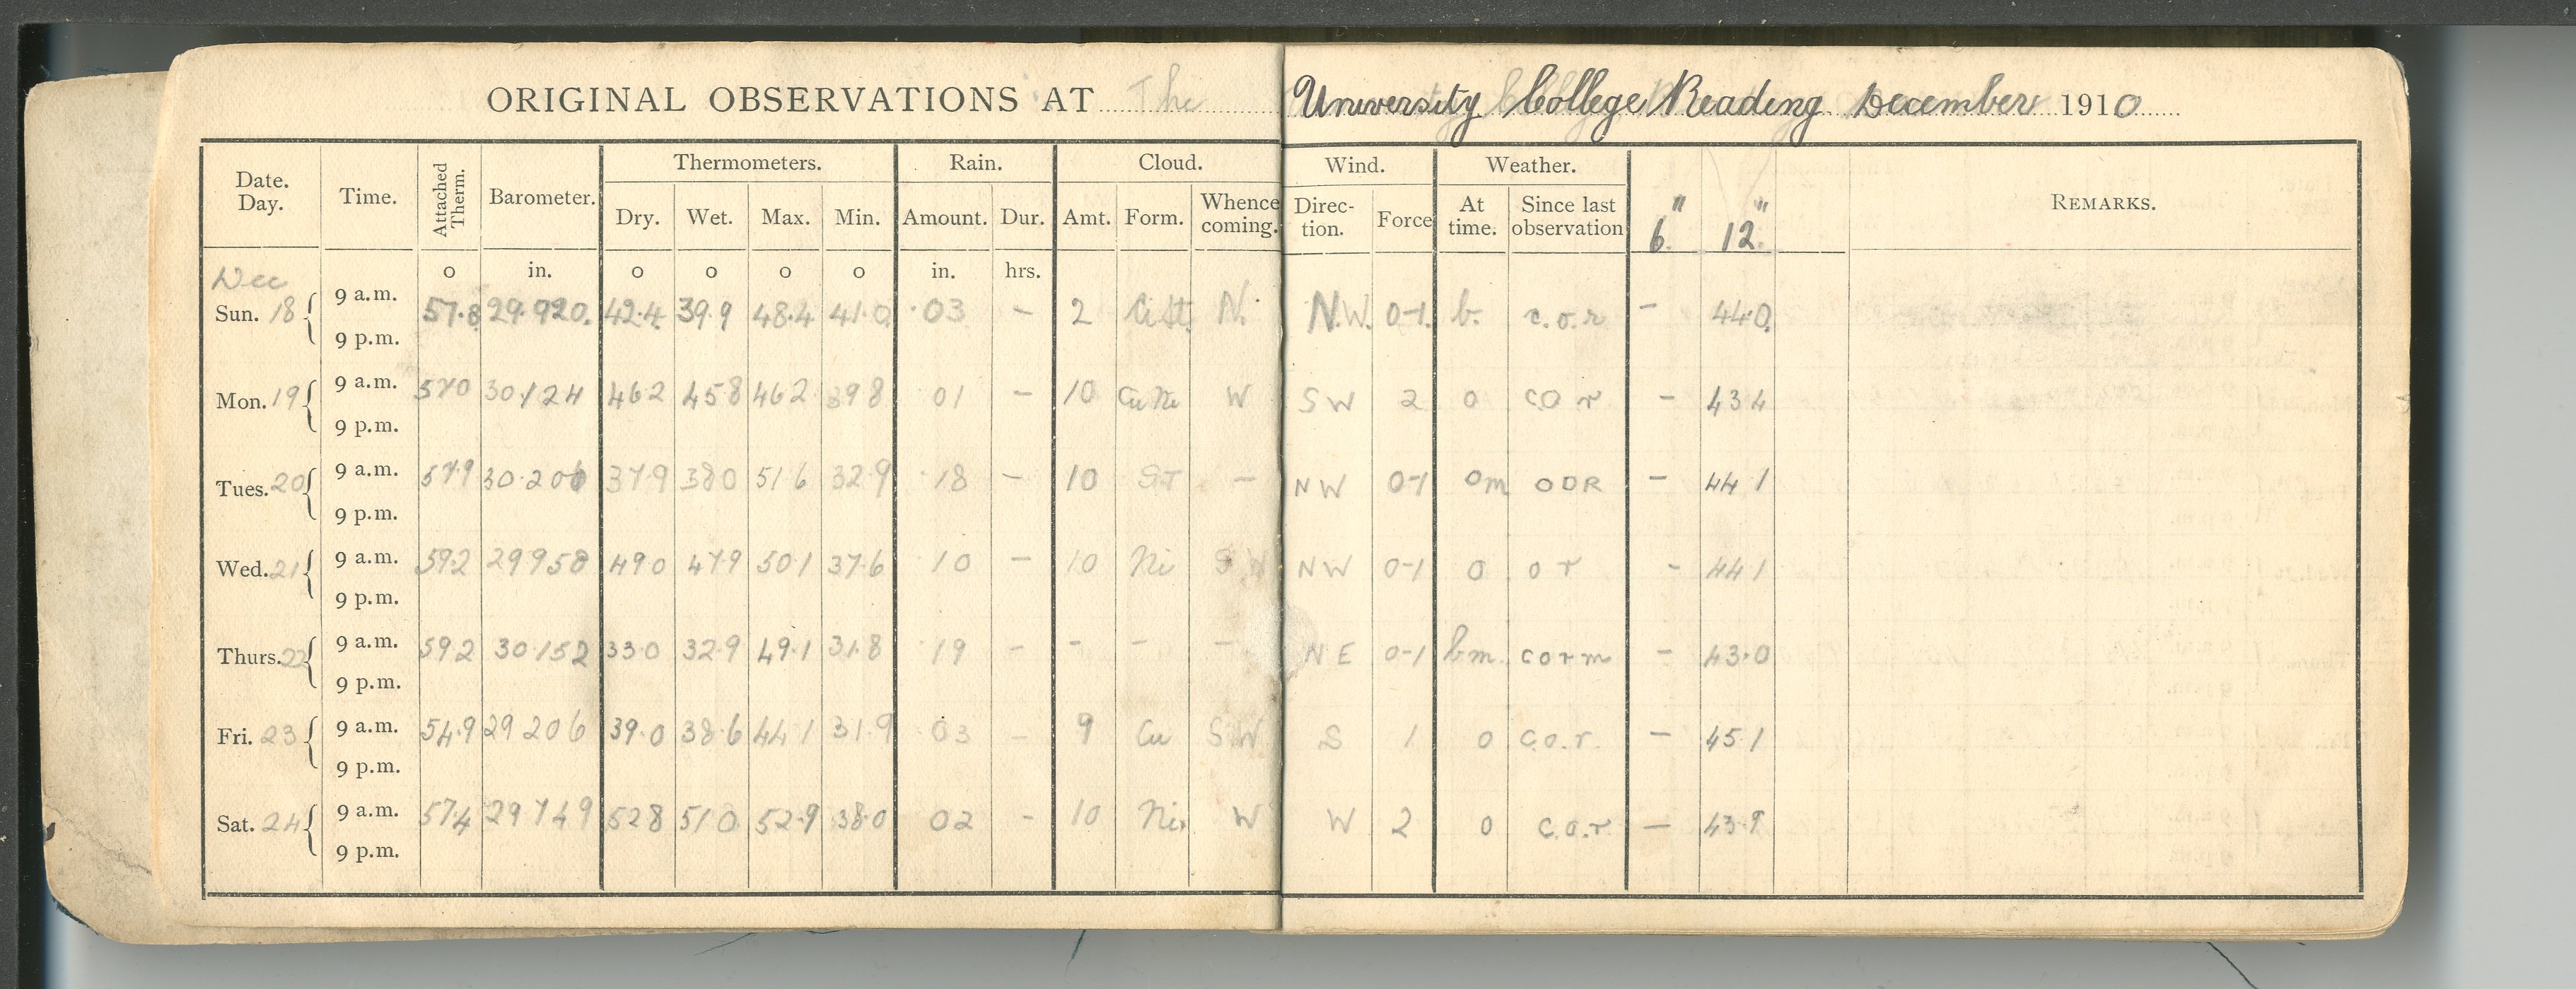 ORIGINAL OBSERVATIONS AT The University College Reading December 1910
Date. Day. Time. Attached Therm. Barometer. Thermometers. Rain. Cloud. Wind. Weather. 6" 12" REMARKS.
Dry. Wet. Max. Min. Amount. Dur. Amt. Form. Whence coming. Direc- tion. Force At time. Since last observation
Dec o in. o o o o in. hrs.
Sun. 18 9 a.m. 57.8 29.920. 42.4. 39.9 48.4 41.0 .03 – 2 Ci.St. N. N.W. 0-1. b. c.o.r – 44.0.
9 p.m.
Mon. 19 9 a.m. 570 30.124 462 458 462 398 01 – 10 Cu Ni W SW 2 o cor – 434
9 p.m.
Tues. 20 9 a.m. 579 30.206 379 380 516 32.9 .18 – 10 ST – NW 0-1 om ODR – 441
9 p.m.
Wed. 21 9 a.m. 59.2 29958 490 47.9 50.1 37.6 10 – 10 Ni SW NW 0-1 o or - 441
9 p.m.
Thurs. 22 9 a.m. 592 30.152 33.0 32.9 49.1 31.8 .19 – – – – NE 0-1 bm. corm – 43.0
9 p.m.
Fri. 23 9 a.m. 54.9 29 206 39.0 38.6 441 31.9 03 – 9 Cu SW S 1 o c.o.r. – 45.1
9 p.m.
Sat. 24 9 a.m. 57.4 29 749 528 510 52.9 38.0 02 - 10 Ni. W W 2 o c.o.r – 43.9
9 p.m.